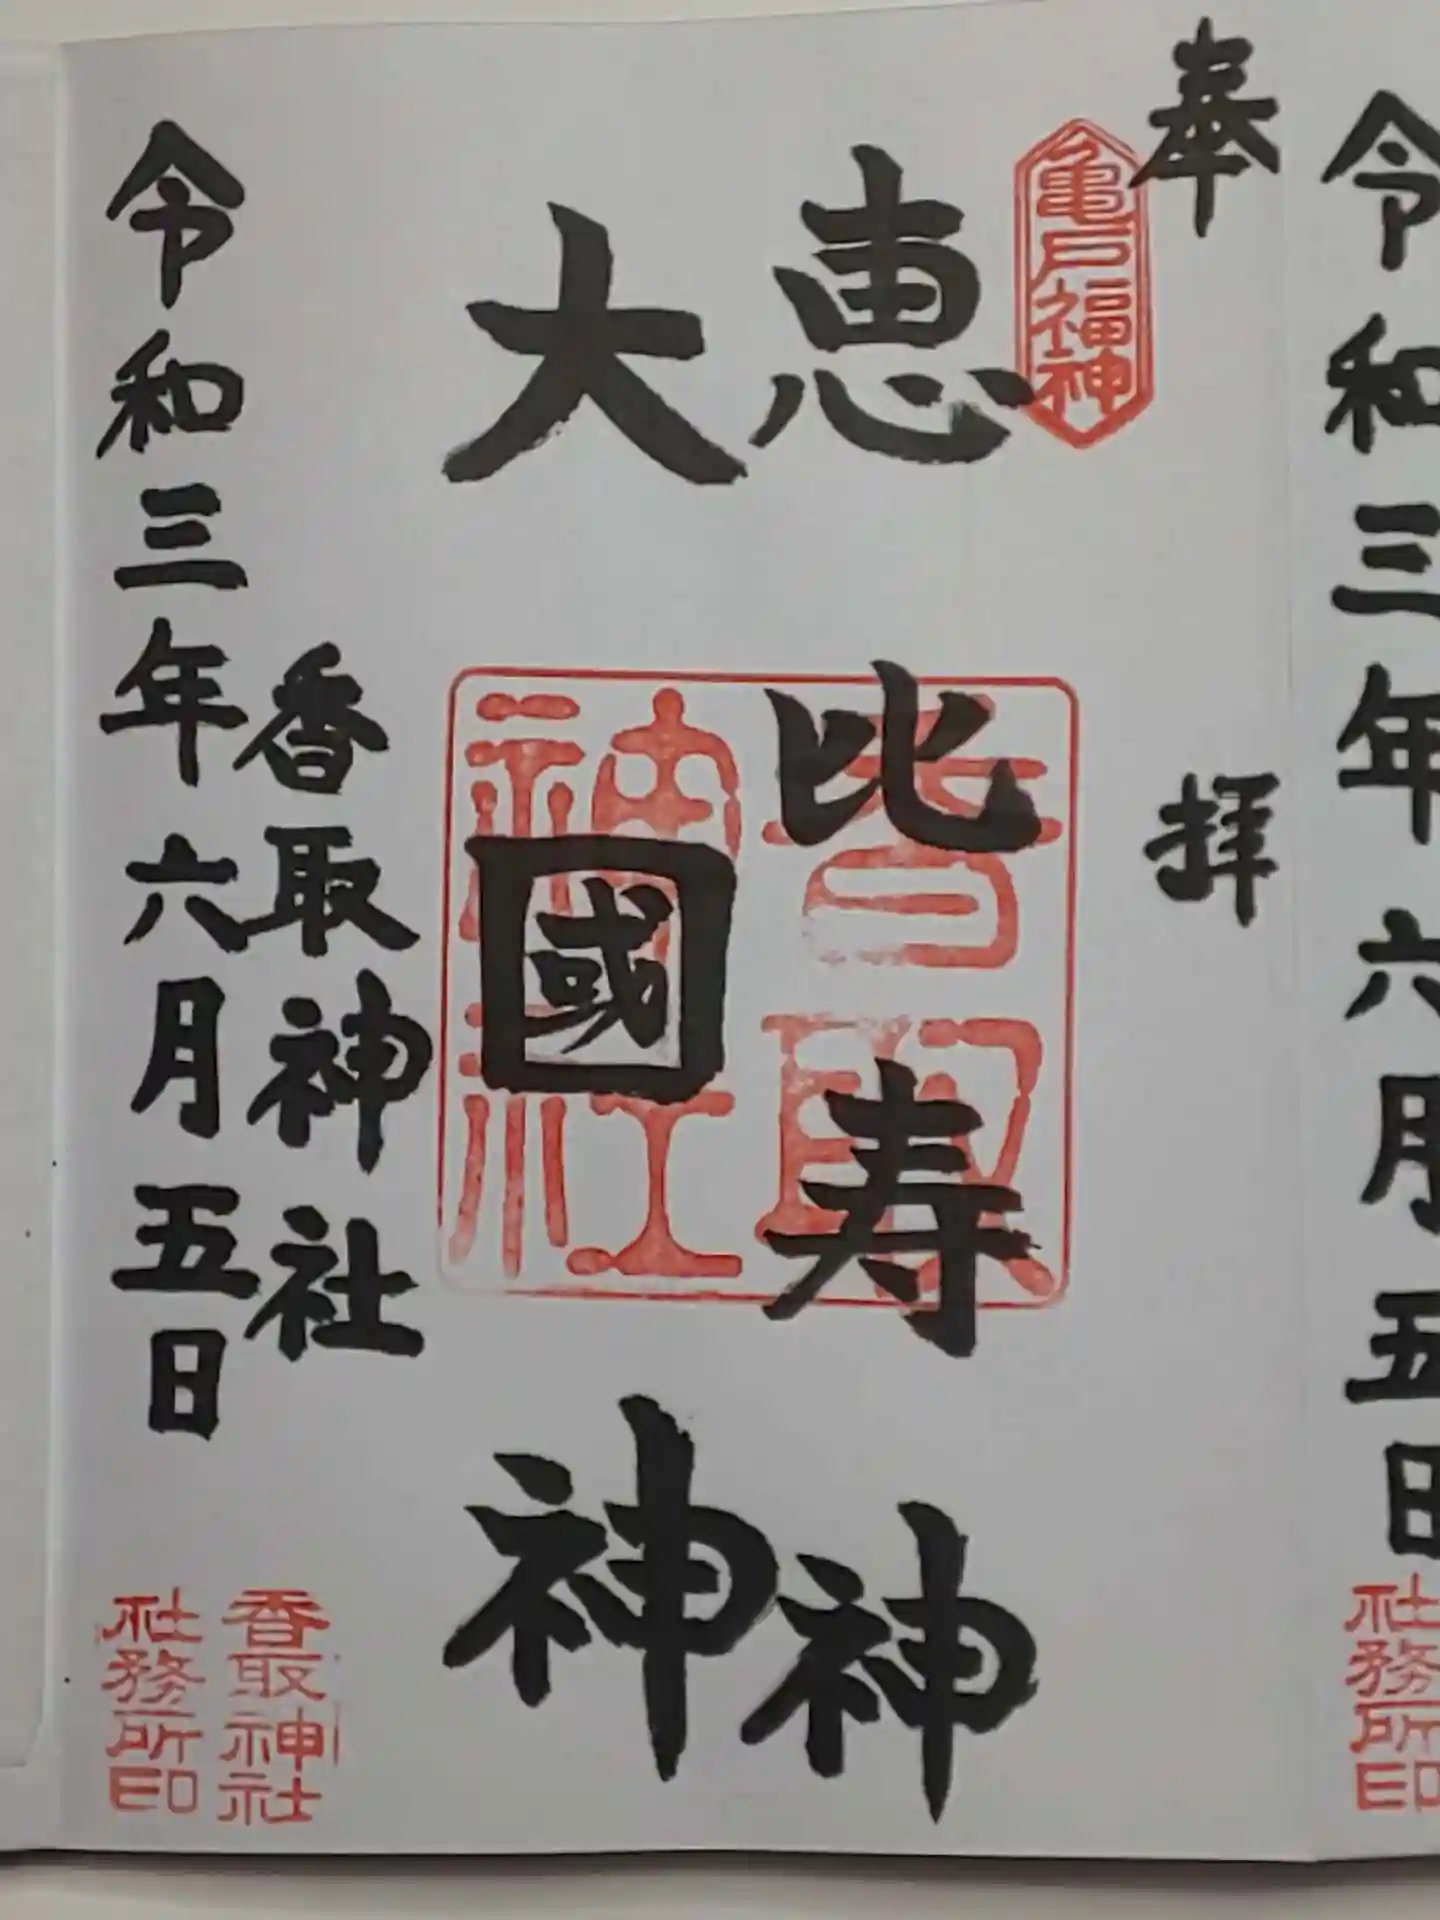 令和三年六月五日
社務所印
奉拝
亀戸福神
恵比寿神
大國神
香取神社
香取神社
令和三年六月五日
香取神社
社務所印